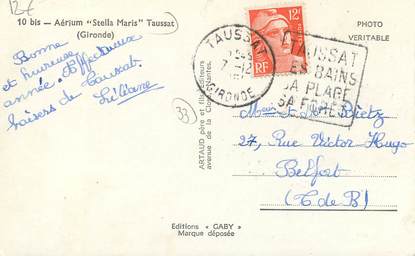 12F
10 bis — Aérium "Stella Maris" Taussat
(Gironde)
PHOTO
VERITABLE
Bonne
et heureuse
année. Affectueux
baisers de Taussat.
Liliane
33
ARTAUD père et fils éditeurs
avenue de la Close Nantes.
TAUSSAT
7-12
GIRONDE
12F
RF
TAUSSAT
LES BAINS
SA PLAGE
SA FORET
27, Rue Victor Hugo
Belfort
(T de B)
Editions « GABY »
Marque déposée